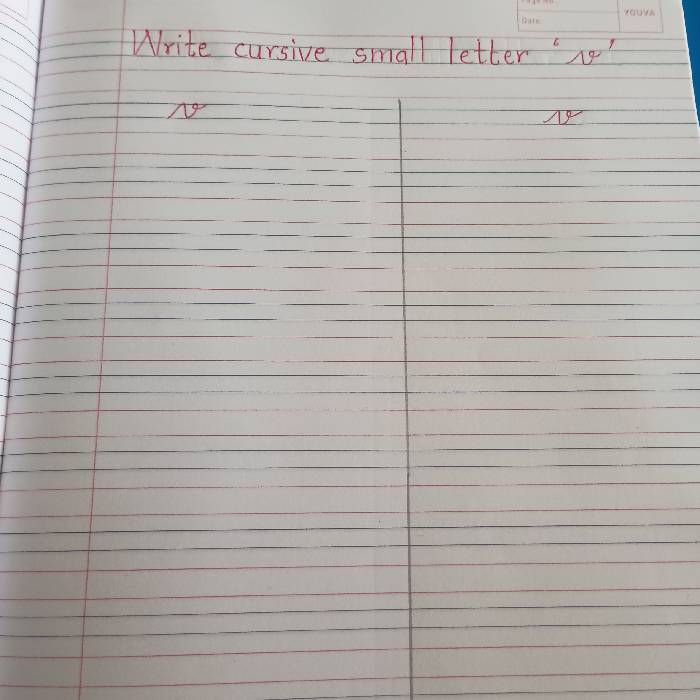 Page No.
Date:
YOUVA
Write cursive small letter 'v'
v v